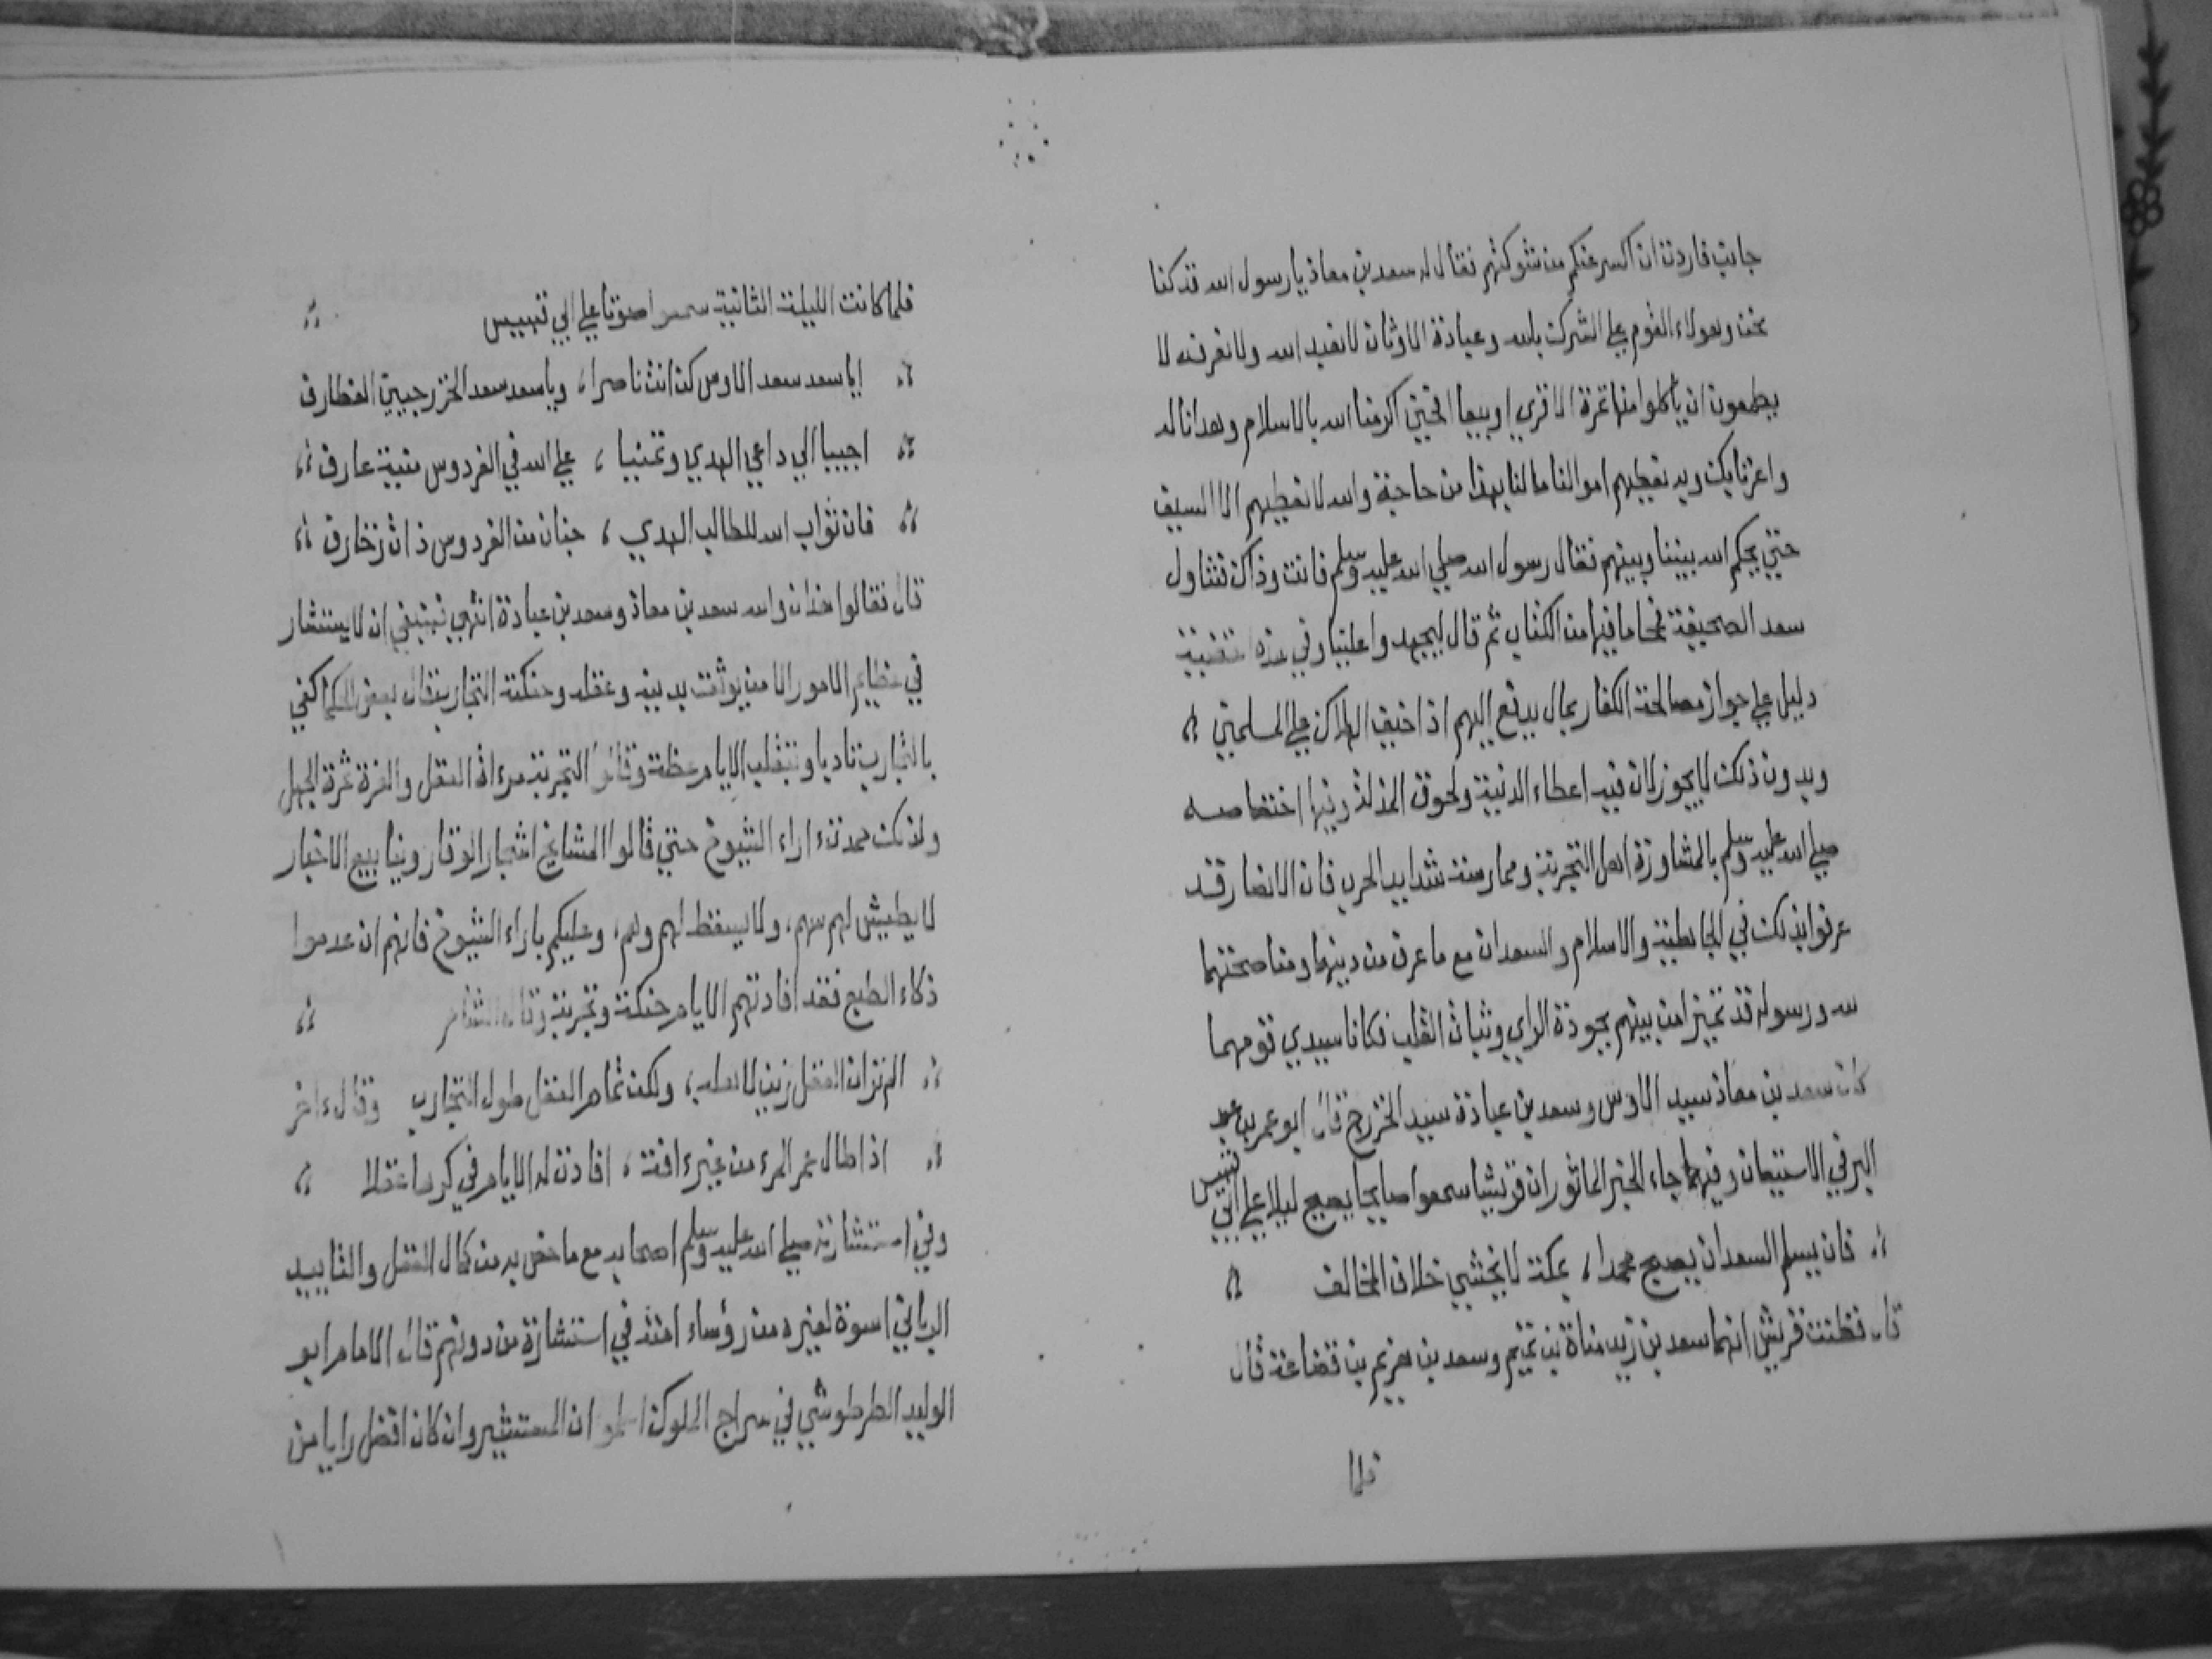 جانب فاردت ان اكسر عنكم من شوكتهم فقال له سعد بن معاذ يا رسول الله قد كنا
نحن وهولاء القوم على الشرك بالله وعبادة الاوثان لا نعبد الله ولا نعرفه لا
يطمعون ان ياكلوا منها تمرة الا قري او بيعا افحين اكرمنا الله بالاسلام وهدانا له
واعزنا بك وبه نعطيهم اموالنا مالنا بهذا من حاجة والله لا نعطيهم الا السيف
حتي يحكم الله بيننا وبينهم فقال رسول الله صلي الله عليه وسلم فانت وذاك فتناول
سعد الصحيفة فمحا ما فيها من الكتاب ثم قال ليجهدوا علينا وفي هذه القضية
دليل علي جواز مصالحة الكفار بمال يدفع اليهم اذا خيف الهلاك علي المسلمين
وبدون ذلك لا يجوز لان فيه اعطاء الدنية ولحوق المذلة وفيها اختصاصه
صلي الله عليه وسلم بالمشاورة اهل التجربة وممارسة شدايد الحرب فان الانصار قد
عرفوا بذلك في الجاهلية والاسلام والسعدان مع ما عرف من دينهما ومناصحتهما
لله ورسوله قد تميزا من بينهم بجودة الراي وثبات القلب فكانا سيدي قومهما
كان سعد بن معاذ سيد الاوس وسعد بن عبادة سيد الخزرج قال ابو عمر بن عبد
البر في الاستيعاب وفيهما جاء الخبر الماثور ان قريشا سمعوا صايحا يصيح ليلا علي ابي قبيس
فان يسلم السعدان يصبح محمدا، بمكة لا يخشي خلاف المخالف
قال فظنت قريش انهما سعد بن زيد مناة بن تميم وسعد بن هزيم بن قضاعة قال
فلما
فلما كانت الليلة الثانية سمعوا صوتا علي ابي قبيس
ايا سعد سعد الاوس كن انت ناصرا، ويا سعد سعد الخزرجيين الغطارف
اجيبا الي داعي الهدي وتمنيا، علي الله في الفردوس منية عارف
فان ثواب الله للطالب الهدي، جنان من الفردوس ذات زخارف
قال فقالوا هذان والله سعد بن معاذ وسعد بن عبادة انتهي فينبغي ان لا يستشار
في عظايم الامور الا من يوثق بدينه وعقله وحنكته التجارب قال بعض الحكما كفي
بالتجارب تاديبا وبتقلب الايام عظة وقالوا التجربة مرءاة العقل والغرة ثمرة الجهل
ولذلك حمدت ءاراء الشيوخ حتي قالوا المشايخ اشجار الوقار وينابيع الاخبار
لا يطيش لهم سهم، ولا يسقط لهم وهم، وعليكم باراء الشيوخ فانهم ان عدموا
ذكاء الطبع فقد افادتهم الايام حنكة وتجربة وقال الشاعر
الم تر ان العقل زين لاهله، ولكن تمام العقل طول التجارب وقال ءاخر
اذا طال عمر المرء من غير ءافة، افادت له الايام في كرها عقلا
وفي استشارته صلي الله عليه وسلم اصحابه مع ما خص به من كمال العقل والتاييد
الرباني اسوة لغيره من رؤساء امته في استشارة من دونهم قال الامام ابو
الوليد الطرطوشي في سراج الملوك اعلموا ان المستشير وان كان افضل رايا من